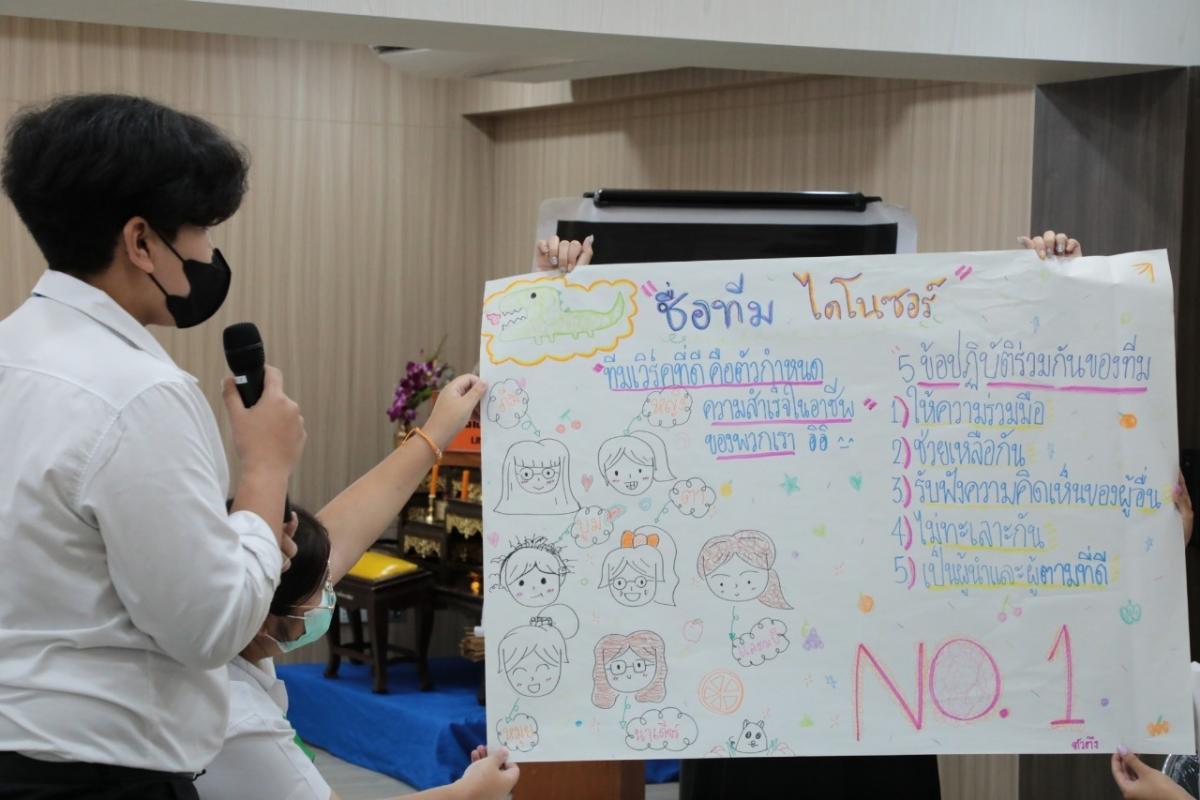 "ชื่อทีม ไดโนซอร์"
"ทีมเวิร์คที่ดี คือตัวกำหนด
ความสำเร็จในอาชีพ"
ของพวกเรา อิอิ
"5 ข้อปฏิบัติร่วมกันของทีม
1) ให้ความร่วมมือ
2) ช่วยเหลือกัน
3) รับฟังความคิดเห็นของผู้อื่น
4) ไม่ทะเลาะกัน
5) เป็นผู้นำและผู้ตามที่ดี
หญิง
ตา
บูม
หมย
นาเดียร์
NO. 1